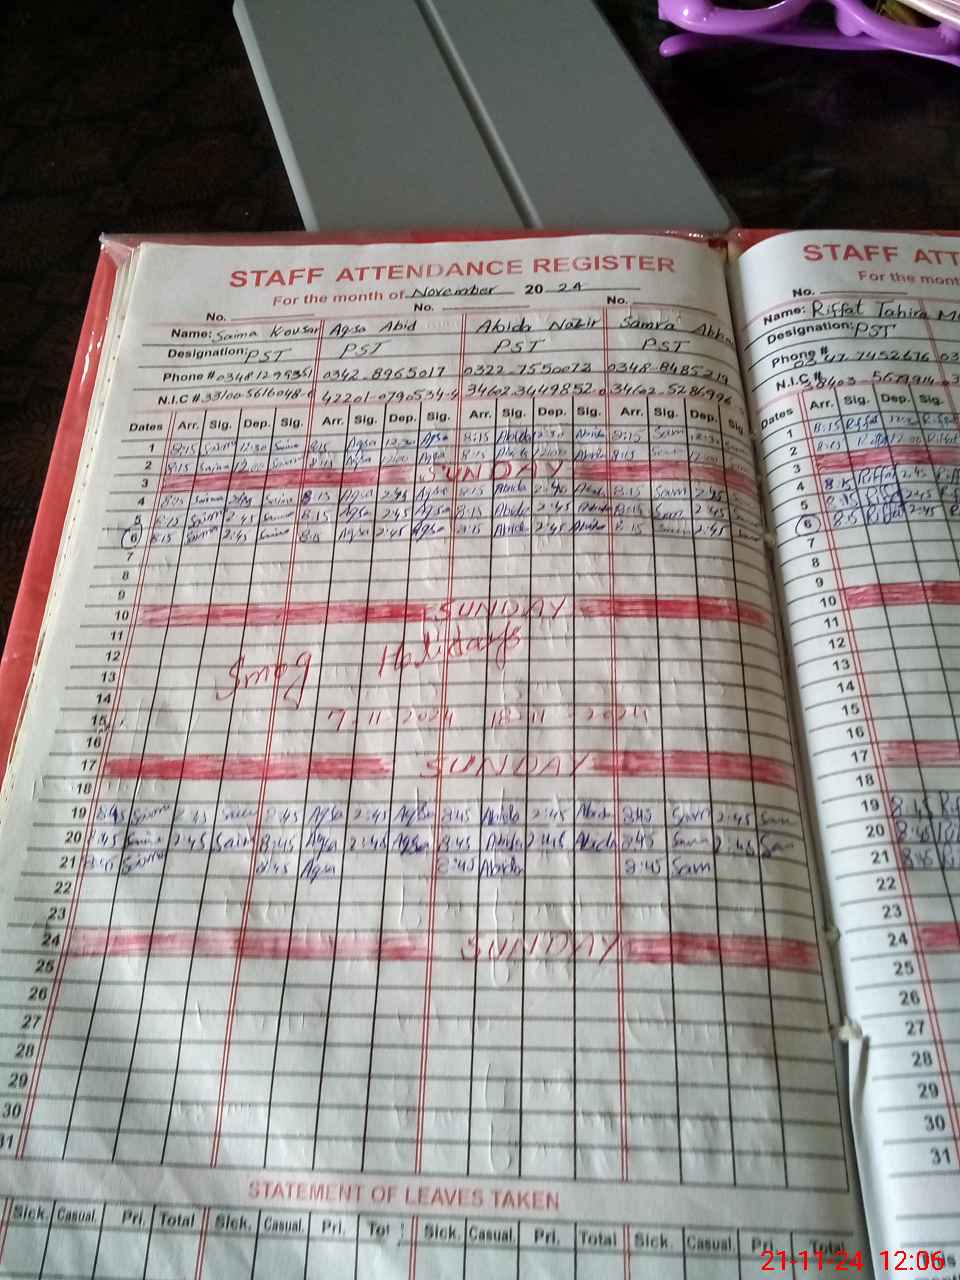 STAFF ATTENDANCE REGISTER
For the month of November 20 24
No. No. No.
Name: Saima Kousar Aqsa Abid Abida Nazir Samra
Designation: PST PST PST PST
Phone # 0342-8965017 0322-7550072 0348-8485219
N.I.C # 42201-0790534-4 34602-3449852-0 34602-5286996
Dates Arr. Sig. Dep. Sig. Arr. Sig. Dep. Sig. Arr. Sig. Dep. Sig. Arr. Sig. Dep. Sig.
1 8:15 Saima 12:30 Saima 8:15 Aqsa 12:30 Aqsa 8:15 Abida 12:30 Abida 8:15 Sam 12:30
2 8:15 Saima 12:00 8:15 Aqsa 12:00 Aqsa 8:15 Abida 12:00 Abida 8:15 Sam 12:00
3 SUNDAY
4 8:15 Saima 2:45 Saima 8:15 Aqsa 2:45 Aqsa 8:15 Abida 2:45 Abida 8:15 Sam 2:45
5 8:15 Saima 2:45 Saima 8:15 Aqsa 2:45 Aqsa 8:15 Abida 2:45 Abida 8:15 Sam 2:45
6 8:15 Saima 2:45 Saima 8:15 Aqsa 2:45 Aqsa 8:15 Abida 2:45 Abida 8:15 Sam 2:45
7
8
9
10 SUNDAY
11
12
13
Smog Holidays
14
15 7-11-2024 18-11-2024
16
17 SUNDAY
18
19 8:45 Saima 2:45 8:45 Aqsa 2:45 Aqsa 8:45 Abida 2:45 Abida 8:45 Sam 2:45 Sam
20 8:45 Saima 2:45 Saima 8:45 Aqsa 2:45 Aqsa 8:45 Abida 2:45 Abida 8:45 Sam 2:45 Sam
21 8:45 Saima 8:45 Aqsa 8:45 Abida 8:45 Sam
22
23
24 SUNDAY
25
26
27
28
29
30
31
STATEMENT OF LEAVES TAKEN
Sick. Casual. Pri. Total Sick. Casual. Pri. Sick. Casual. Pri. Total Sick. Casual. Pri. Total
STAFF
For the month
No.
Name: Riffat Tahira
Designation: PST
Phone #
N.I.C #
Dates Arr. Sig. Dep. Sig.
1 8:15 Riffat
2 8:15 12:00
3
4 8:15 Riffat 2:45
5 8:15 Riffat 2:45
6 8:15 Riffat 2:45
7
8
9
10
11
12
13
14
15
16
17
18
19 8:45
20 8:45
21 8:45
22
23
24
25
26
27
28
29
30
31
21-11-24 12:06